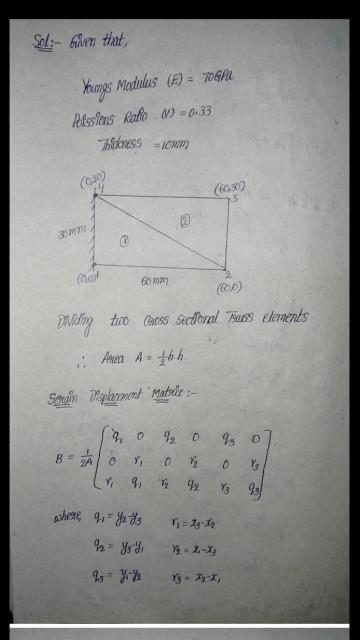 Sol:- Given that,
Youngs Modulus (E) = 70GPa
Poissions Ratio (V) = 0.33
Thickness = 10mm
(0,30)
4
(60,30)
3
②
30mm
①
(0,0) 1
60mm
2
(60,0)
Dividing two Cross Sectional Truss elements
∴ Area A = 1/2 b.h.
Strain Displacement Matrix:-
q₁ 0 q₂ 0 q₃ 0
B = 1/2A 0 r₁ 0 r₂ 0 r₃
r₁ q₁ r₂ q₂ r₃ q₃
where, q₁ = y₂-y₃ r₁ = x₃-x₂
q₂ = y₃-y₁ r₂ = x₁-x₃
q₃ = y₁-y₂ r₃ = x₂-x₁